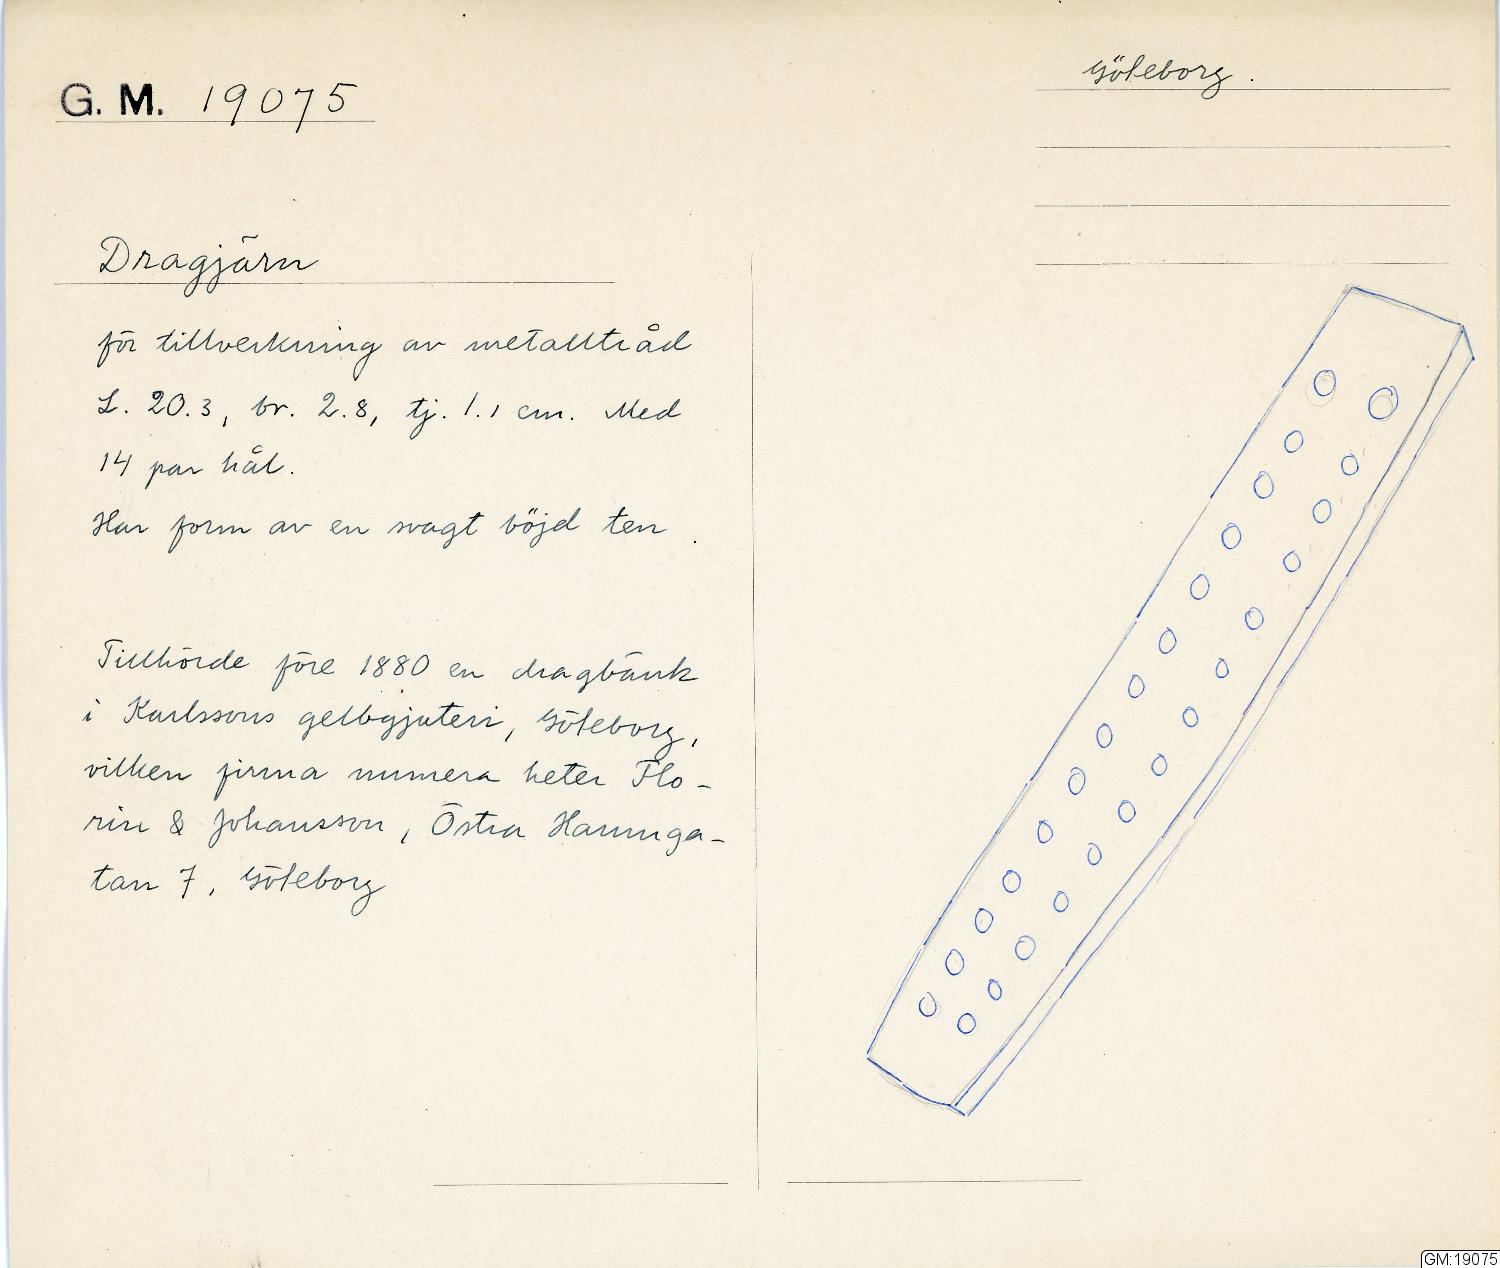 G. M. 19075
Göteborg.
Dragjärn
för tillverkning av metalltråd
L. 20.3, br. 2.8, tj. 1.1 cm. Med
14 par hål.
Har form av en svagt böjd ten.
Tillhörde före 1880 en dragbänk
i Karlssons gelbgjuteri, Göteborg,
vilken firma numera heter Flo-
rin & Johansson, Östra Hamnga-
tan 7, Göteborg
GM:19075